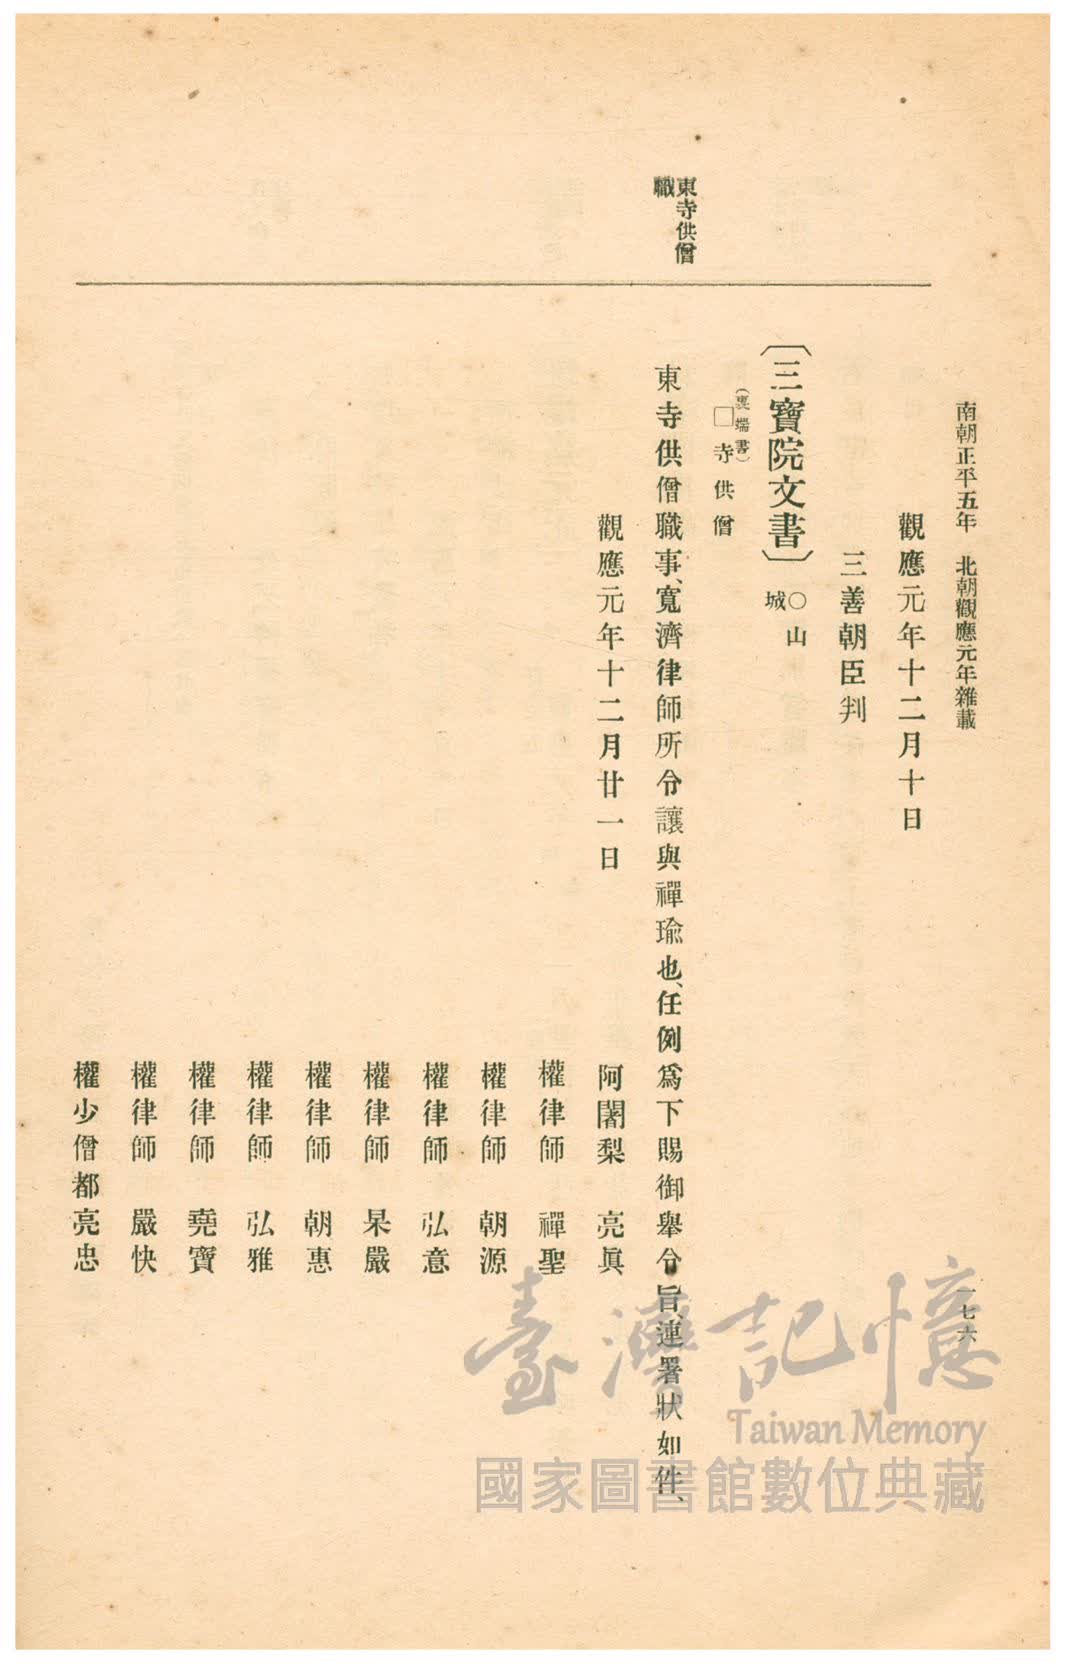 南朝正平五年　北朝觀應元年雜載
一七六
觀應元年十二月十日
三善朝臣判
〔三寶院文書〕
○山
城
(裏端書)
□寺供僧
東寺供僧
職
東寺供僧職事、寬濟律師所令讓與禪瑜也、任例爲下賜御擧令旨、連署狀如件、
觀應元年十二月廿一日
阿闍梨　亮眞
權律師　禪聖
權律師　朝源
權律師　弘意
權律師　杲嚴
權律師　朝惠
權律師　弘雅
權律師　堯寶
權律師　嚴快
權少僧都亮忠
臺灣記憶
Taiwan Memory
國家圖書館數位典藏